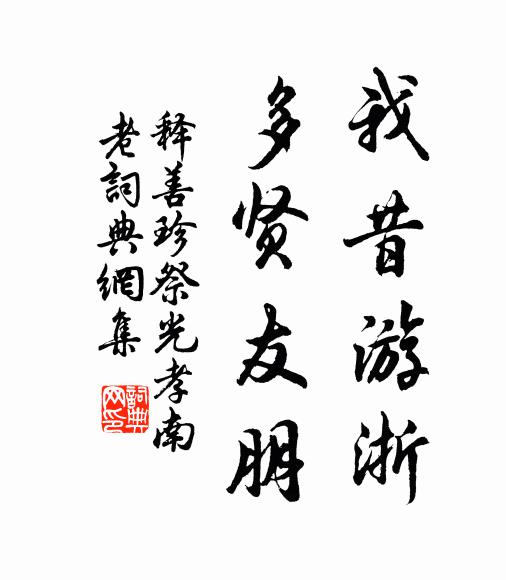 我昔游浙
多贤友朋
释善珍祭光孝南
老词典網集
詞典
网印